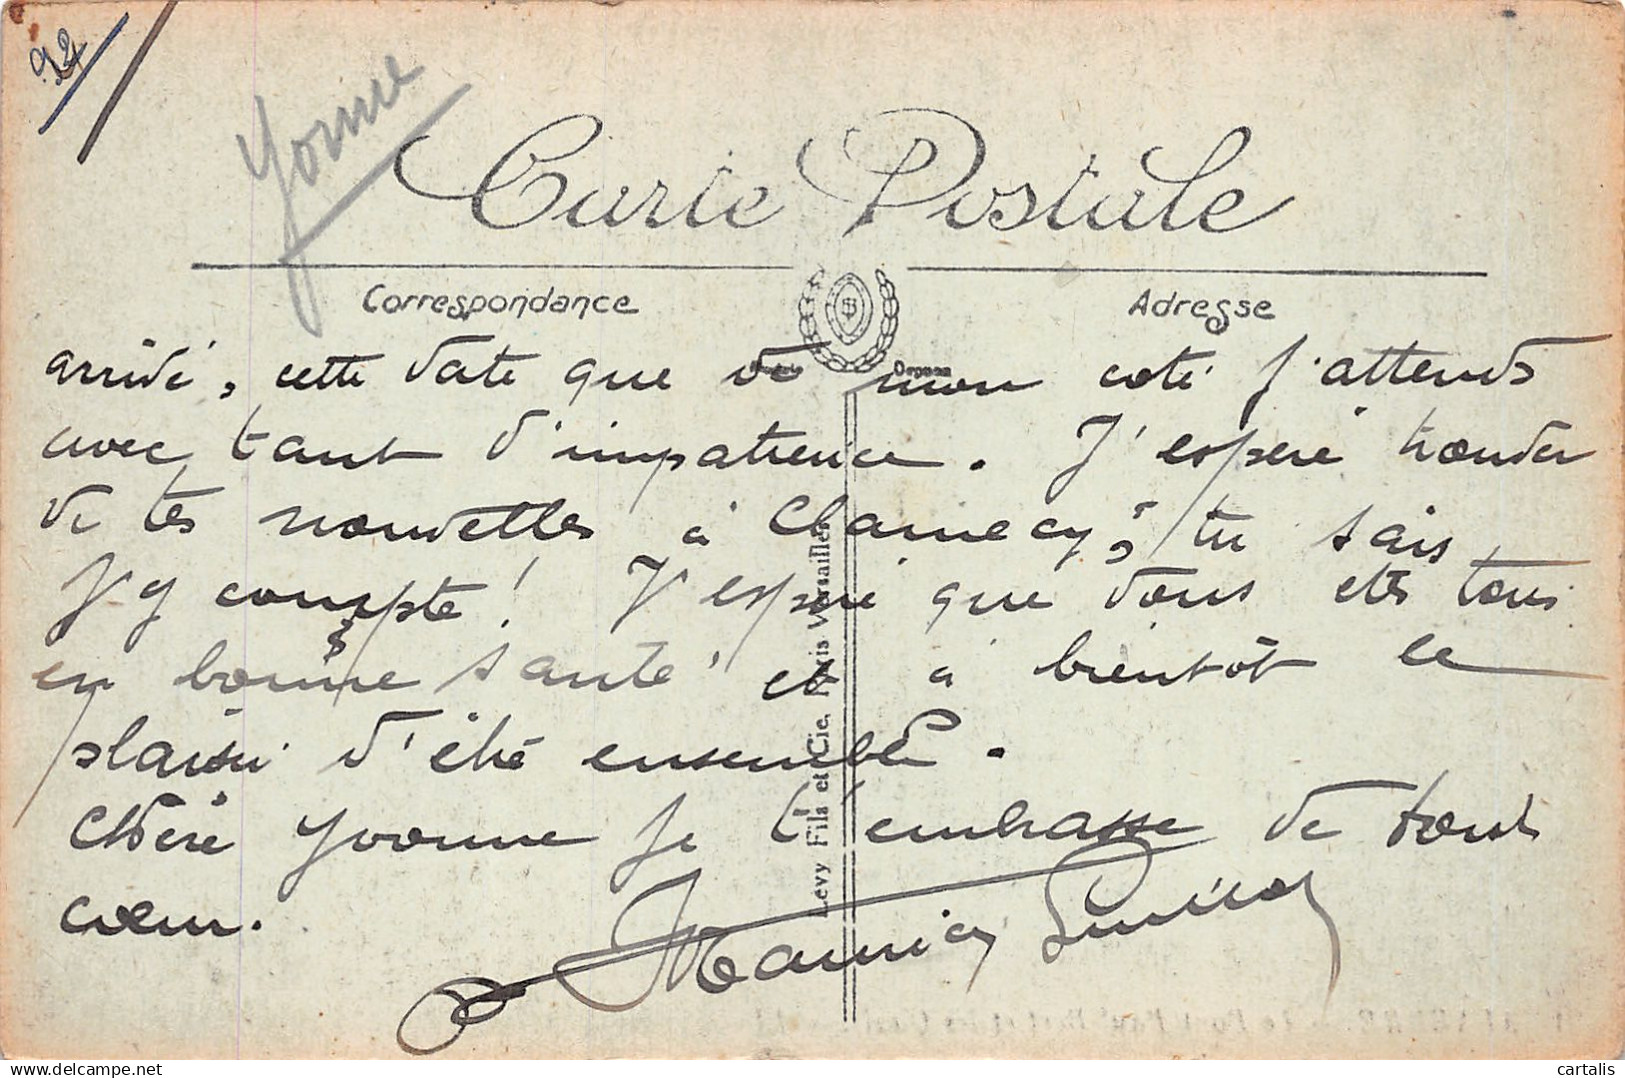 92
Yonne
Carte Postale
Correspondance
Adresse
arrivé, cette date que de mon coté j'attends
avec tant d'impatience. J'espère trouver
de tes nouvelles à Clamecy, tu sais
j'y compte ! J'espère que vous êtes tous
en bonne santé et à bientôt le
plaisir d'être ensemble.
Chère Yvonne je t'embrasse de tout
cœur.
Maurice
Levy Fils et Cie, Paris Versailles
cartalis